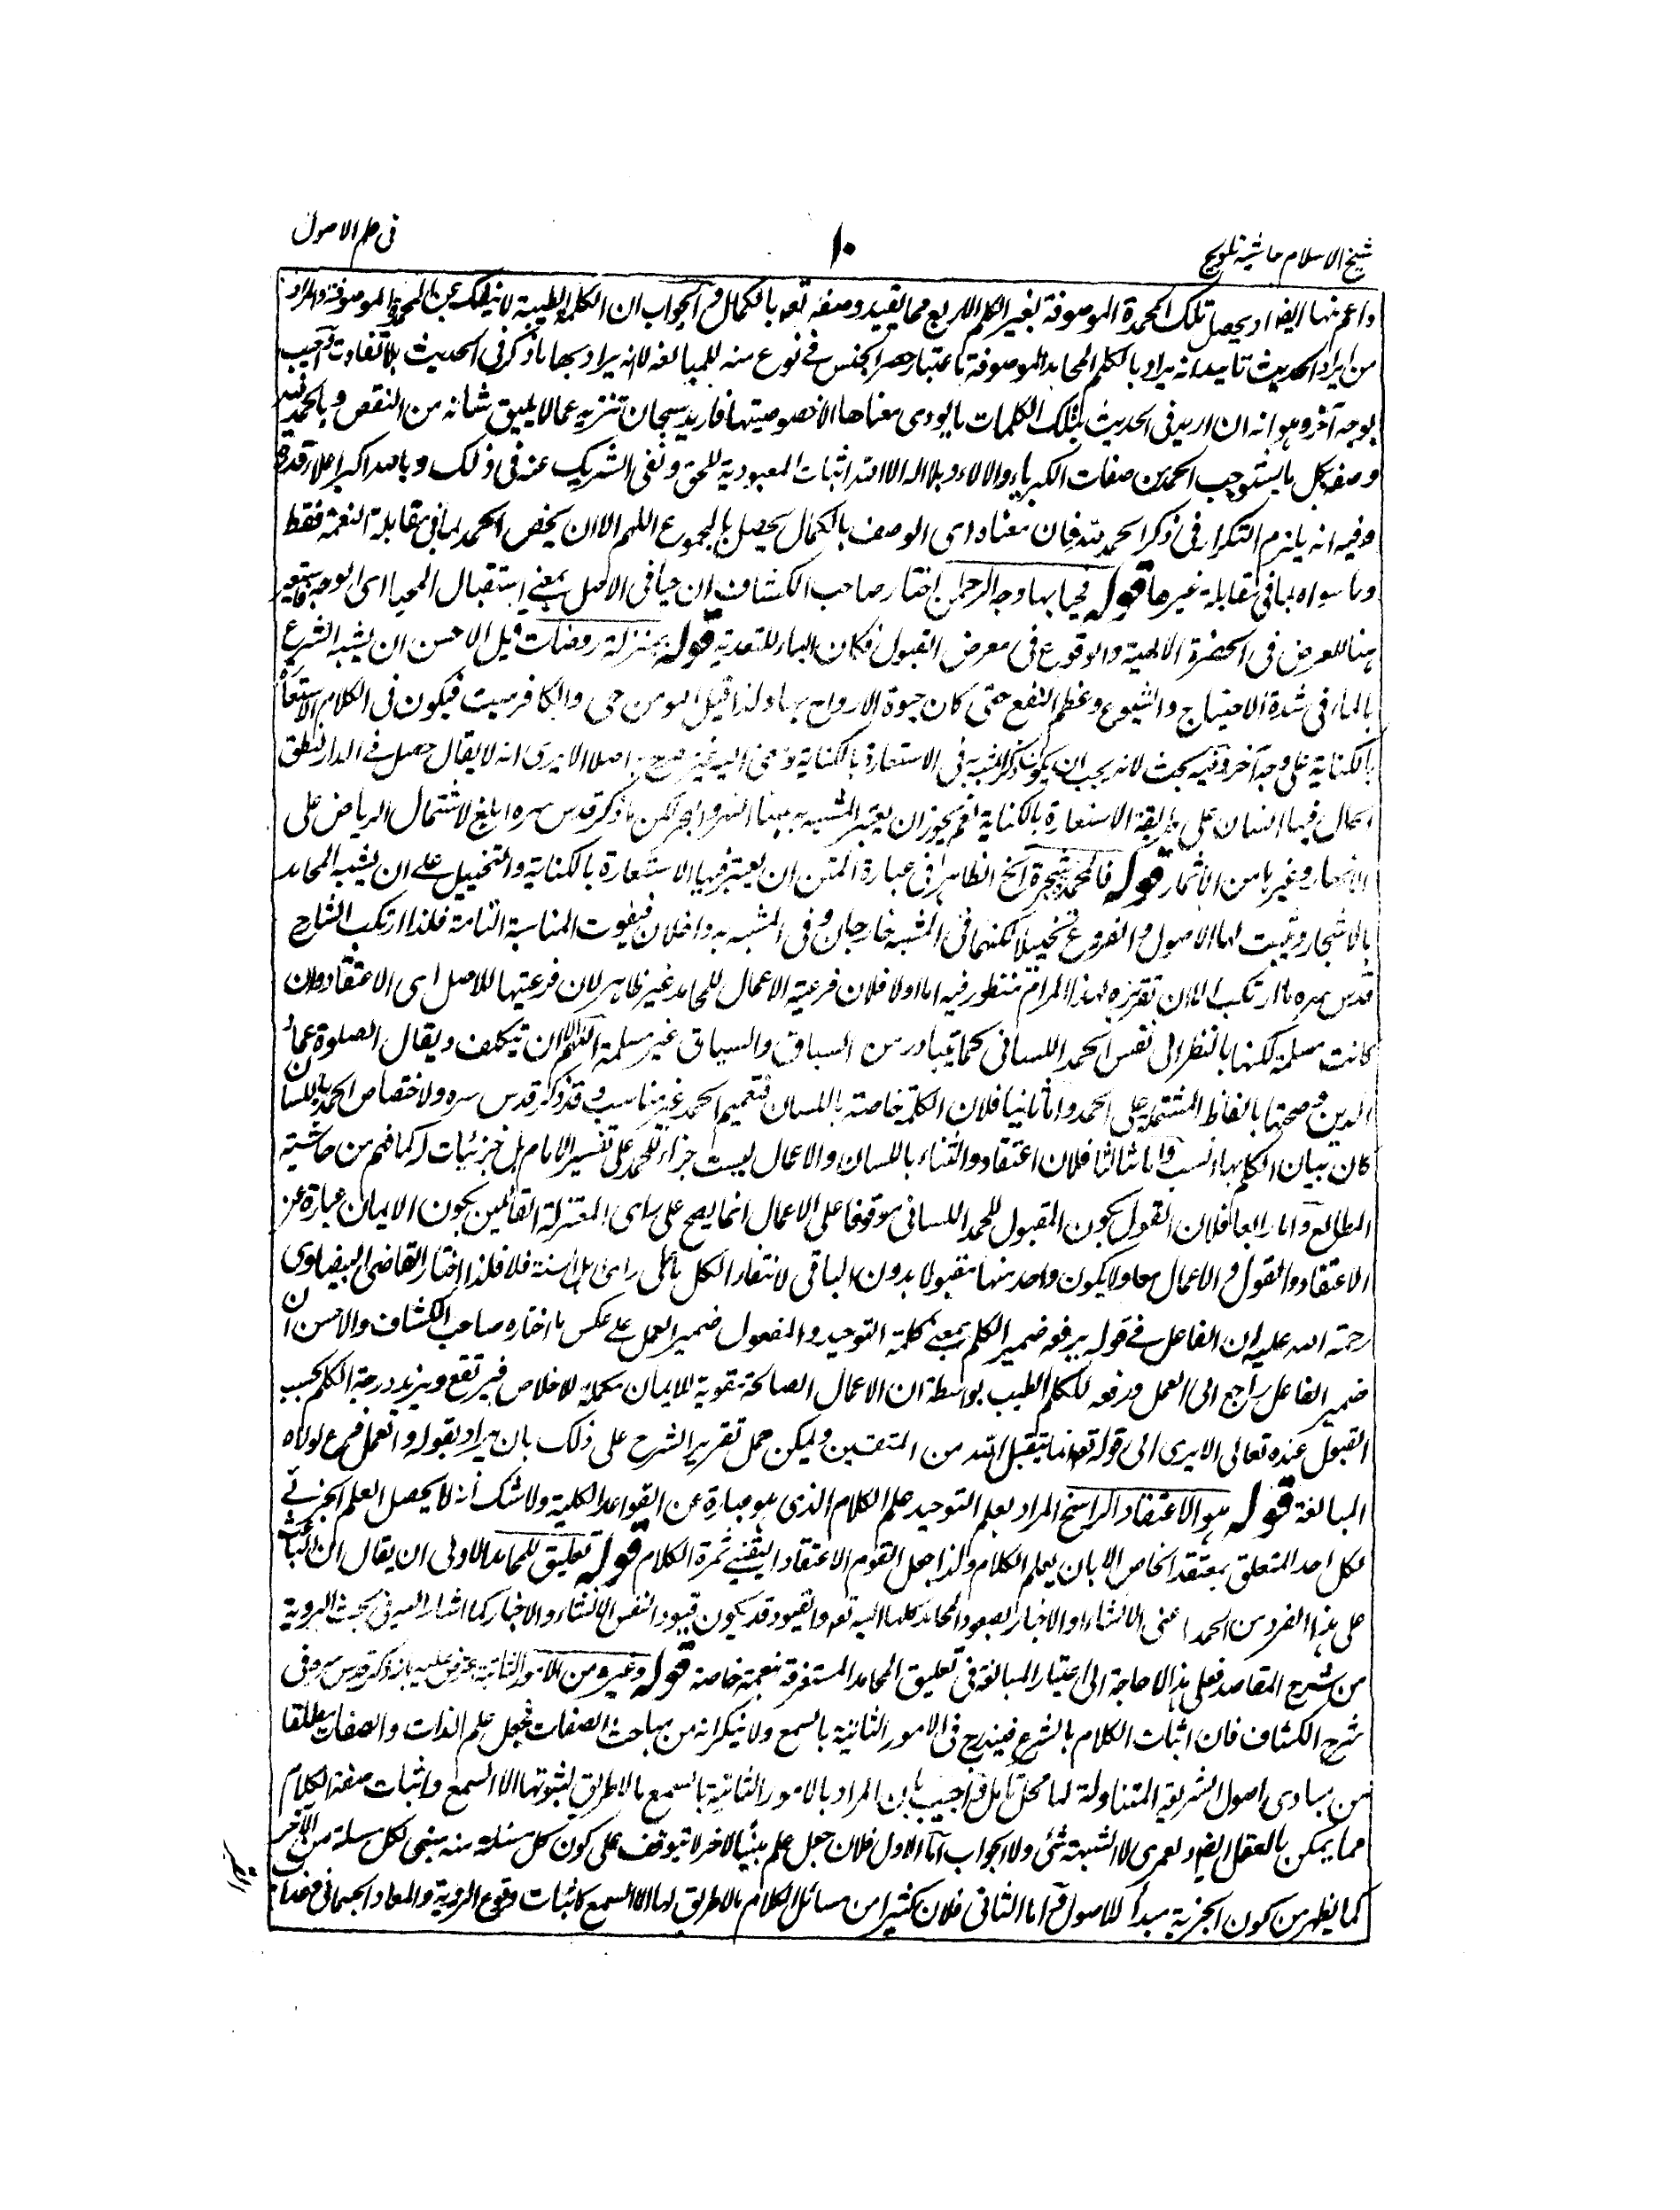 شيخ الاسلام حاشية تلويح
١٠
فى علم الاصول
واعم منها ايضا اذ يحصل تلك المحمدة الموصوفة بغير الكلم الاربع مما يفيد وصفه تعه بالكمال والجواب ان الكلمة الطيبة لا ينفك عن المحمدة الموصوفة والمراد
من ايراد الحديث تاييد انه يراد بالكلم المحامد الموصوفة باعتبار حصر الجنس فى نوع منه للمبالغة لا انه يراد بها ما ذكر فى الحديث بلا تفاوت واجيب
بوجه آخر وهو انه ان اريد فى الحديث بتلك الكلمات ما يودى معناها لا خصوصيتها فاريد بسبحان تنزيهه عما لا يليق شانه من النقص وبالحمد لله
وصفه بكل ما يستوجب الحمد من صفات الكبرياء والالاء وبلا اله الا الله اثبات المعبودية للحق ونفى الشريك عنه فى ذلك وبالله اكبر اعلاء قدره
وفيه انه يلزم التكرار فى ذكر الحمد لله فان معناه اى الوصف بالكمال يحصل بالمجموع اللهم الا ان يخص الحمد بما فى مقابلة النعمة فقط
وما سواه بما فى مقابلة غيرها قوله فحيا بها وجه الرحمن اختار صاحب الكشاف ان حيا فى الاصل بمعنى استقبال المحيا اى الوجه فاستعير
هنا للعرض فى الحضرة الالهية والوقوع فى معرض القبول فكان الباء للتعدية قوله بمنزلة روضات قيل الاحسن ان يشبه الشرع
بالماء فى شدة الاحتياج والشيوع وعظم النفع حتى كان حيوة الارواح بها ولذا قيل المومن حى والكافر ميت فيكون فى الكلام الاستعارة
بالكناية على وجه آخر وفيه بحث لانه يجب ان يكون ذكر المشبه فى الاستعارة بالكناية اصلا الا يرى انه لا يقال حصل فى الدار نطق
الحال فيها انسان على طريقة الاستعارة بالكناية نعم يجوز ان يعتبر المشبه به هنا النهر والبحر لكن ما ذكر قدس سره ابلغ لاشتمال الرياض على
الانهار وغيرها من الاثمار قوله فالمحمد شجرة الخ الظاهر فى عبارة المتن ان يعتبر فيها الاستعارة بالكناية والتخييل على ان يشبه المحامد
بالاشجار ويثبت لها الاصول والفروع تخييلا لكنهما فى المشبه خارجان وفى المشبه به داخلان فيفوت المناسبة التامة فلذا ارتكب الشارح
قدس سره ما ارتكب الا ان تقريره لهذا المرام منظور فيه اما اولا فلان فرعية الاعمال للمحامد غير ظاهر لان فرعيتها للاصل اى الاعتقاد وان
كانت مسلمة لكنها بالنظر الى نفس الحمد اللسانى كما يتبادر من السباق والسياق غير مسلمة اللهم الا ان يتكلف ويقال الصلوة عماد
الدين وصحتها بالفاظ المشتملة على الحمد واما ثانيا فلان الكلمة خاصة باللسان فتعميم الحمد غير مناسب وقد ذكر قدس سره ولاختصاص الحمد باللسان
كان بيان الكلم بها انسب واما ثالثا فلان اعتقاد والثناء باللسان والاعمال ليست جزاء للحمد على تفسير الامام بل جزئيات له كما فهم من حاشية
المطالع واما رابعا فلان القول بكون المقبول للحمد اللسانى موقوفا على الاعمال انما يصح على راى المعتزلة القائلين بكون الايمان عبارة عن
الاعتقاد والقول والاعمال معا ولا يكون واحد منها مقبولا بدون الباقى لانتفاء الكل باعلى راى اهل السنة فلا فلذا اختار القاضى البيضاوى
رحمة الله عليه ان الفاعل فى قوله يرفعه ضمير الكلم بمعنى كلمة التوحيد والمفعول ضمير العمل على عكس ما اختاره صاحب الكشاف والاحسن ان
ضمير الفاعل راجع الى العمل ورفعه للكلم الطيب بواسطة ان الاعمال الصالحة مقوية للايمان مكملة للاخلاص فيرتفع ويزيد درجة الكلم بحسب
القبول عنده تعالى الا يرى الى قوله تعه انما يتقبل الله من المتقين ويمكن حمل تقرير الشرح على ذلك بان يراد بقوله والعمل فرع لولاه
المبالغة قوله هو الاعتقاد الراسخ المراد بعلم التوحيد علم الكلام الذى هو عبارة عن القواعد الكلية ولا شك انه لا يحصل العلم الجزئى
لكل احد المتعلق بمعتقد الخاص الا بان يعلم الكلام ولذا جعل القوم الاعتقاد اليقينى ثمرة الكلام قوله تعليق للمحامد الاولى ان يقال ان الباعث
على هذا الفرد من الحمد اعنى الانشاء او الاخبار بصعود المحامد كلها اليه تعه والقيود قد يكون قيود النفس الانشاء والاخبار كما اشار اليه فى بحث الروية
من شرح المقاصد فعلى هذا لا حاجة الى اعتبار المبالغة فى تعليق المحامد المستغرقة بنعمة خاصة قوله وغيره من الامور الثابتة اعترض عليه بانه ذكر قدس سره فى
شرح الكشاف فان اثبات الكلام بالشرع فيندرج فى الامور الثابتة بالسمع ولا ينكر انه من مباحث الصفات فجعل علم الذات والصفات مطلقا
من مبادى اصول الشريعة المتناولة لها محل تامل واجيب بان المراد بالامور الثابتة بالسمع ما لا طريق لثبوتها الا السمع واثبات صفة الكلام
مما يمكن بالعقل ايضا ولعمرى لا الشبهة شئ ولا الجواب اما الاول فلان جعل علم مبنيا لاخر لا يتوقف على كون كل مسئلة منه مبنى لكل مسلة من الآخر
كما يظهر من كون الجزئية مبدأ للاصول واما الثانى فلان كثيرا من مسائل الكلام ما لا طريق لها الا السمع كاثبات وقوع الروية والمعاد الجسمانى